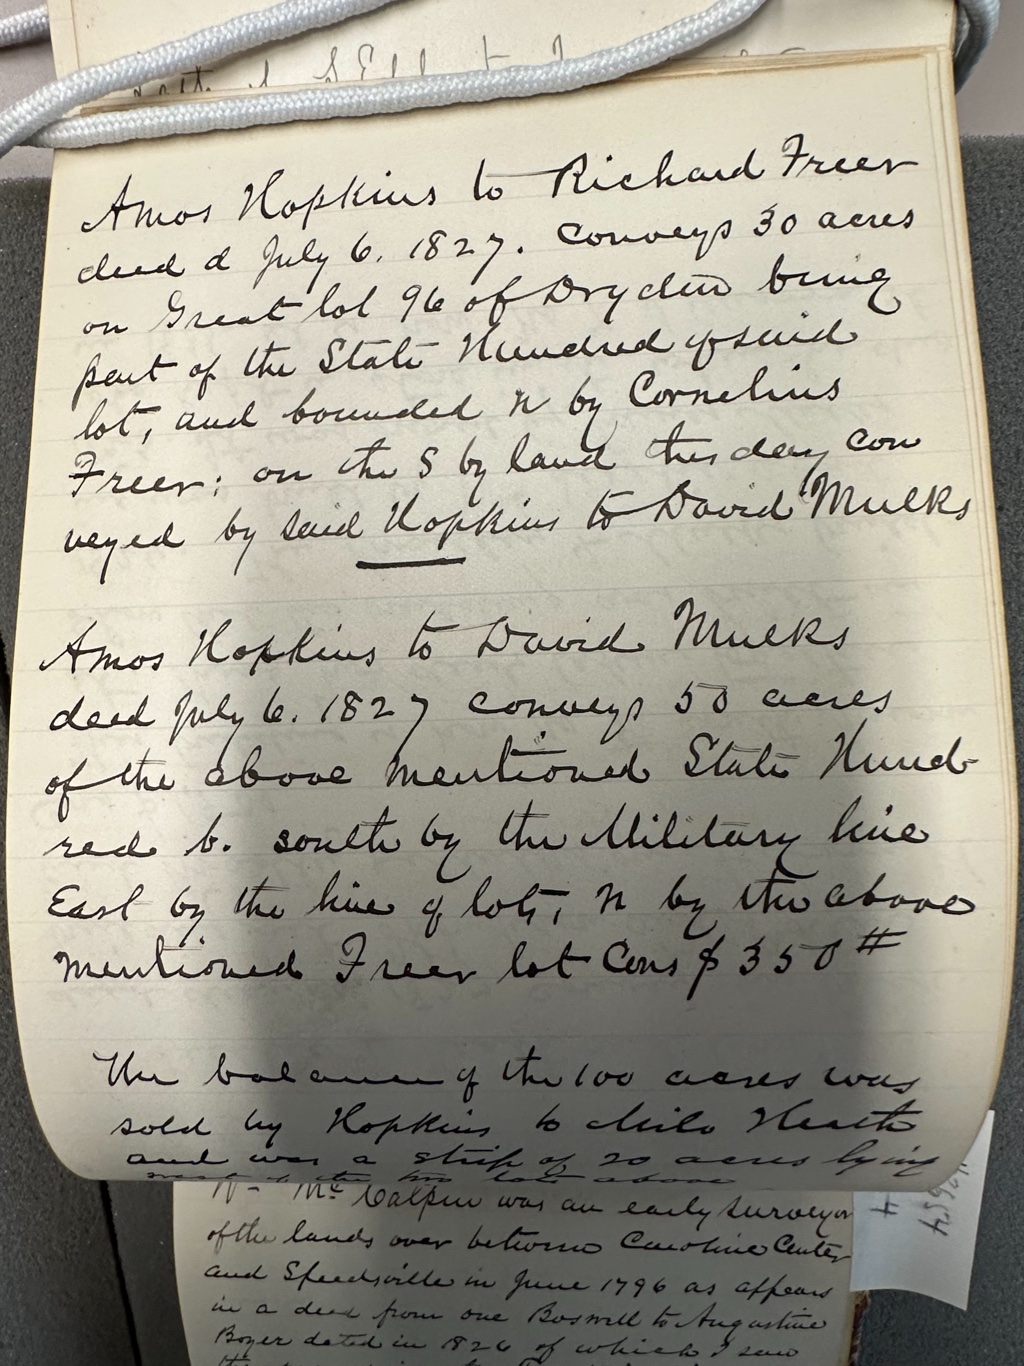 Amos Hopkins to Richard Freer
deed d July 6. 1827. conveys 30 acres
on Great lot 96 of Dryden being
part of the State Hundred of said
lot, and bounded N by Cornelius
Freer: on the S by land this day con
veyed by said Hopkins to David Mulks
Amos Hopkins to David Mulks
deed July 6. 1827 conveys 50 acres
of the above mentioned State Hund-
red b. south by the Military line
East by the line of lots, N by the above
mentioned Freer lot Cons $350
The balance of the 100 acres was
sold by Hopkins to Milo Heath
and was a strip of 20 acres lying
west of the two lots above
Mc Calpin was an early surveyor
of the lands over between Caroline Center
and Speedsville in June 1796 as appears
in a deed from one Boswell to Augustine
Boyer dated in 1826 of which I saw